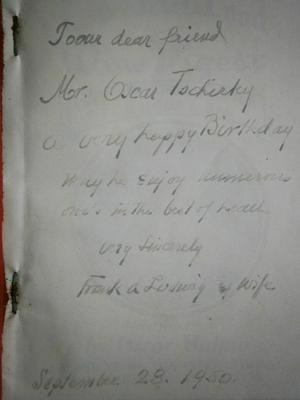 To our dear friend
Mr. Oscar Tschirky
a very happy Birthday
may he enjoy numerous
one's in the best of health
very Sincerely
Frank a Ludwig & Wife
September 28. 1950.